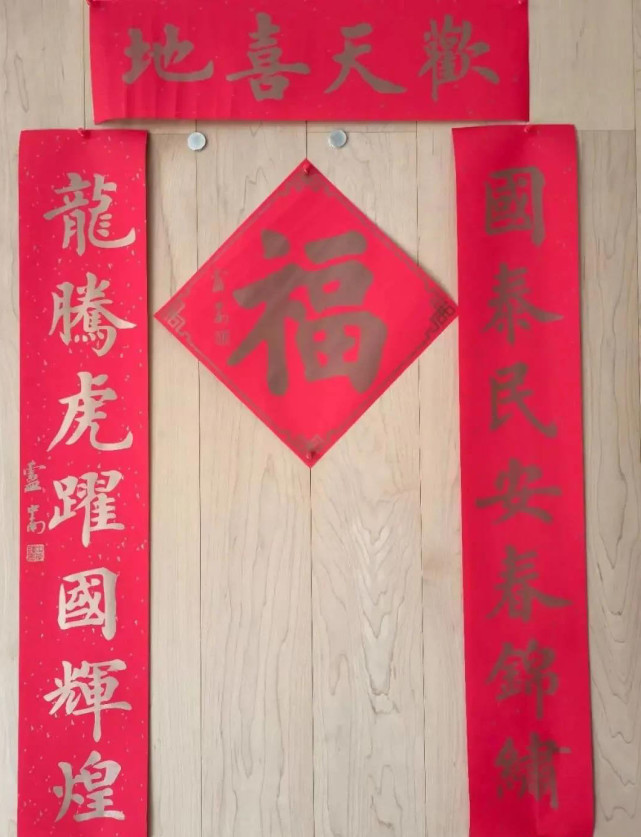 歡天喜地
國泰民安春錦繡
福
盧中南
龍騰虎躍國輝煌
盧中南